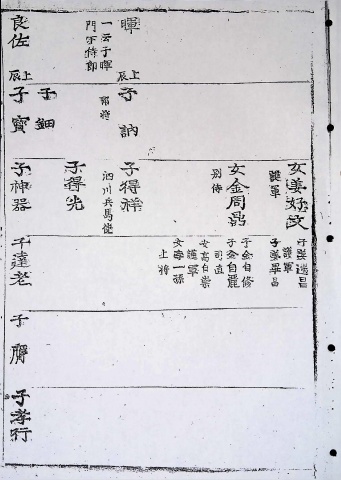 暉
上辰
一云于暉
門下侍郎
良佐
上辰
子訥
郎將
子鈿
子寶
女姜好文
護軍
女金周鼎
別侍
子得祥
泗川兵馬使
子得光
子神器
子姜瑞昌
護軍
子姜畢昌
子金自修
子金自麗
司直
女高自崇
護軍
女李一孫
上將
子達老
子膺
子孝行